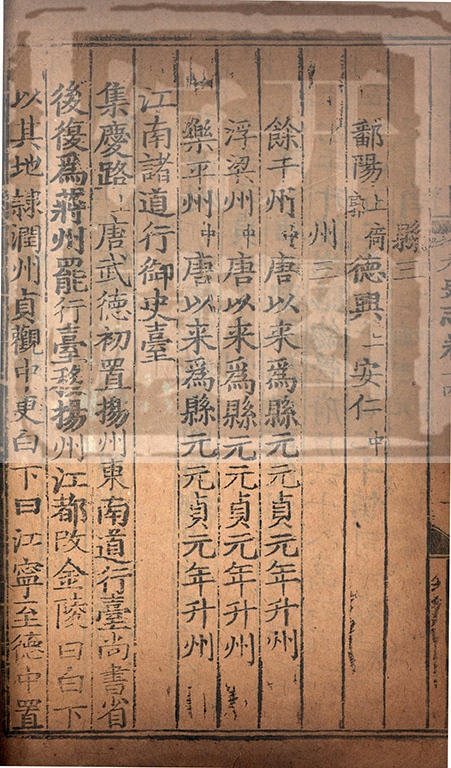 縣三
鄱陽上倚郭德興上安仁中
州三
餘干州中唐以来爲縣元元貞元年升州
浮梁州中唐以来爲縣元元貞元年升州
樂平州中唐以来爲縣元元貞元年升州
江南諸道行御史臺
集慶路上唐武德初置揚州東南道行臺尚書省
後復爲蔣州罷行臺移揚州江都改金陵曰白下
以其地隷潤州貞觀中更白下曰江寧至德中置